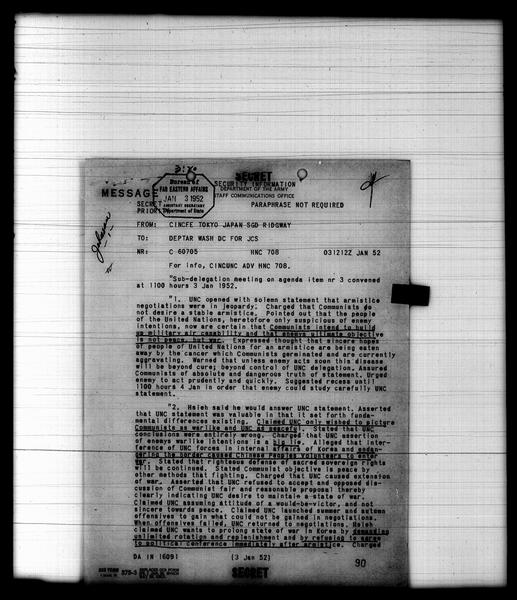 SECRET
SECURITY INFORMATION
DEPARTMENT OF THE ARMY
STAFF COMMUNICATIONS OFFICE
MESSAGE
Bureau of
FAR EASTERN AFFAIRS
JAN 3 1952
ASSISTANT SECRETARY
Department of State
SECRET
PARAPHRASE NOT REQUIRED
PRIORITY
FROM: CINCFE TOKYO JAPAN SGD RIDGWAY
TO: DEPTAR WASH DC FOR JCS
NR: C 60705 HNC 708 031212Z JAN 52
For info, CINCUNC ADV HNC 708.
"Sub-delegation meeting on agenda item nr 3 convened
at 1100 hours 3 Jan 1952.
"1. UNC opened with solemn statement that armistice
negotiations were in jeopardy. Charged that Communists do
not desire a stable armistice. Pointed out that the people
of the United Nations, heretofore only suspicious of enemy
intentions, now are certain that Communists intend to build
up military air capability and that enemys ultimate objective
is not peace, but war. Expressed thought that sincere hopes
of people of United Nations for an armistice are being eaten
away by the cancer which Communists germinated and are currently
aggravating. Warned that unless enemy acts soon this disease
will be beyond cure; beyond control of UNC delegation. Assured
Communists of absolute and dangerous truth of statement. Urged
enemy to act prudently and quickly. Suggested recess until
1100 hours 4 Jan in order that enemy could study carefully UNC
statement.
"2. Hsieh said he would answer UNC statement. Asserted
that UNC statement was valuable in that it set forth funda-
mental differences existing. Claimed UNC only wished to picture
Communists as warlike and UNC as peaceful. Stated that UNC
conclusions were entirely wrong. Charged that UNC assertion
of enemys warlike intentions is a big lie. Alleged that inter-
ference of UNC forces in internal affairs of Korea and endan-
gering the border caused Chinese Peoples Volunteers to enter
war. Stated that fight in defense of sacred sovereign rights
will be continued. Stated Communist objective is peace by
other methods that fighting. Charged that UNC caused extension
of war. Asserted that UNC refused to accept and opposed dis-
cussion of Communist fair and reasonable proposal thereby
clearly indicating UNC desire to maintain a state of war.
Claimed UNC assuming attitude of a would-be-victor, and not
sincere towards peace. Claimed UNC launched summer and autumn
offensives to gain what could not be gained in negotiations.
When offensives failed, UNC returned to negotiations. Hsieh
claimed UNC wants to prolong state of war in Korea by demanding
unlimited rotation and replenishment and by refusing to agree
to political conference immediately after armistice. Charged
DA IN 16091 (3 Jan 52)
90
SECRET